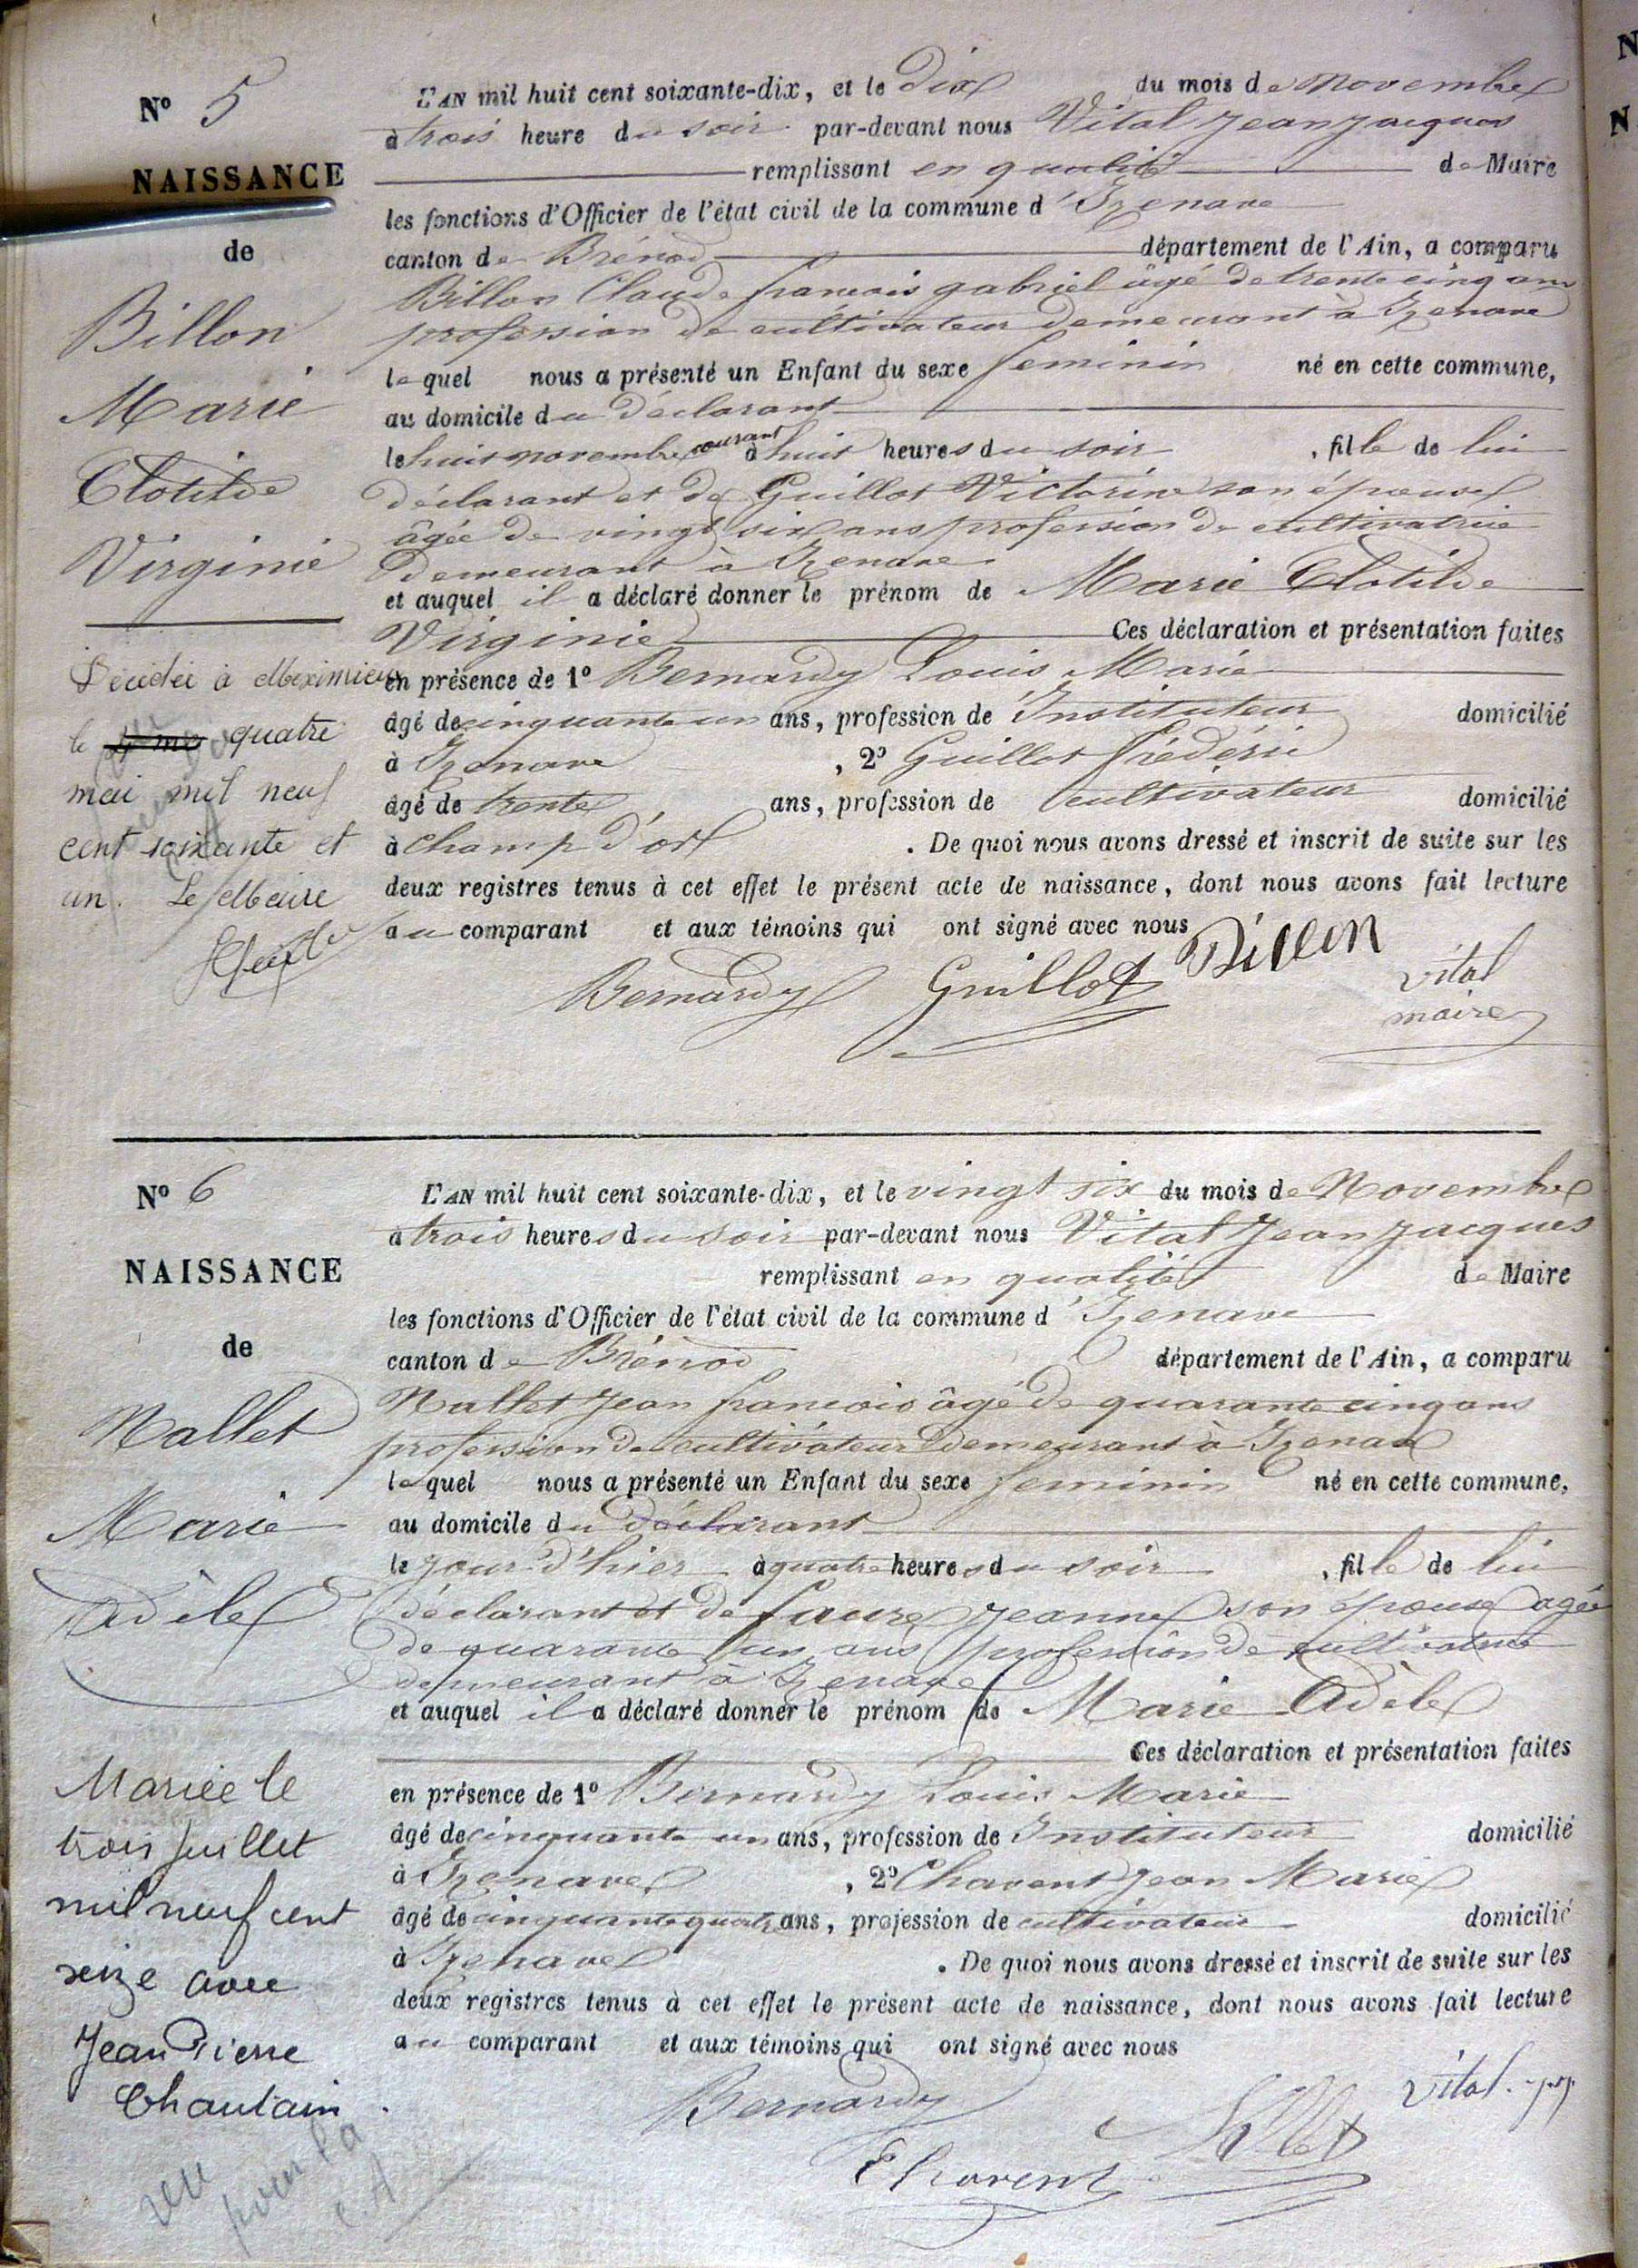 N° 5
NAISSANCE
de
Billon
Marie
Clotilde
Virginie
Décédée à Meximieux
le quatre
mai mil neuf
cent soixante et
un. Le Maire
L'AN mil huit cent soixante-dix, et le dix du mois de Novembre
à trois heure du soir par-devant nous Vital Jean Jacques
remplissant en qualité de Maire
les fonctions d'Officier de l'état civil de la commune d'Izenave
canton de Brénod département de l'Ain, a comparu
Billon Claude francois gabriel âgé de trente cinq ans
profession de cultivateur demeurant à Izenave
lequel nous a présenté un Enfant du sexe feminin né en cette commune,
au domicile du déclarant
le huit novembre courant à huit heures du soir , fille de lui
déclarant et de Guillot Victorine son épouse
âgée de vingt six ans profession de cultivatrice
demeurant à Izenave
et auquel il a déclaré donner le prénom de Marie Clotilde
Virginie Ces déclaration et présentation faites
en présence de 1° Bernardy Louis Marie
âgé de cinquante un ans, profession de Instituteur domicilié
à Izenave , 2° Guillot frédéric
âgé de trente ans, profession de cultivateur domicilié
à Champ d'or . De quoi nous avons dressé et inscrit de suite sur les
deux registres tenus à cet effet le présent acte de naissance, dont nous avons fait lecture
au comparant et aux témoins qui ont signé avec nous
Bernardy Guillot Billon Vital
maire
N° 6
NAISSANCE
de
Nallet
Marie
Adèle
Mariée le
trois Juillet
mil neuf cent
seize avec
Jean Pierre
Chautain
vu
pour la
L'AN mil huit cent soixante-dix, et le vingt six du mois de Novembre
à trois heures du soir par-devant nous Vital Jean Jacques
remplissant en qualité de Maire
les fonctions d'Officier de l'état civil de la commune d'Izenave
canton de Brénod département de l'Ain, a comparu
Nallet Jean francois âgé de quarante cinq ans
profession de cultivateur demeurant à Izenave
lequel nous a présenté un Enfant du sexe feminin né en cette commune,
au domicile du déclarant
le jour d'hier à quatre heures du soir , fille de lui
déclarant et de faure Jeanne son épouse agée
de quarante un ans profession de cultivatrice
demeurant à Izenave
et auquel il a déclaré donner le prénom de Marie Adèle
Ces déclaration et présentation faites
en présence de 1° Bernardy Louis Marie
âgé de cinquante un ans, profession de Instituteur domicilié
à Izenave , 2° Chavent Jean Marie
âgé de cinquante quatre ans, profession de cultivateur domicilié
à Izenave . De quoi nous avons dressé et inscrit de suite sur les
deux registres tenus à cet effet le présent acte de naissance, dont nous avons fait lecture
au comparant et aux témoins qui ont signé avec nous
Bernardy Vital
Chavent